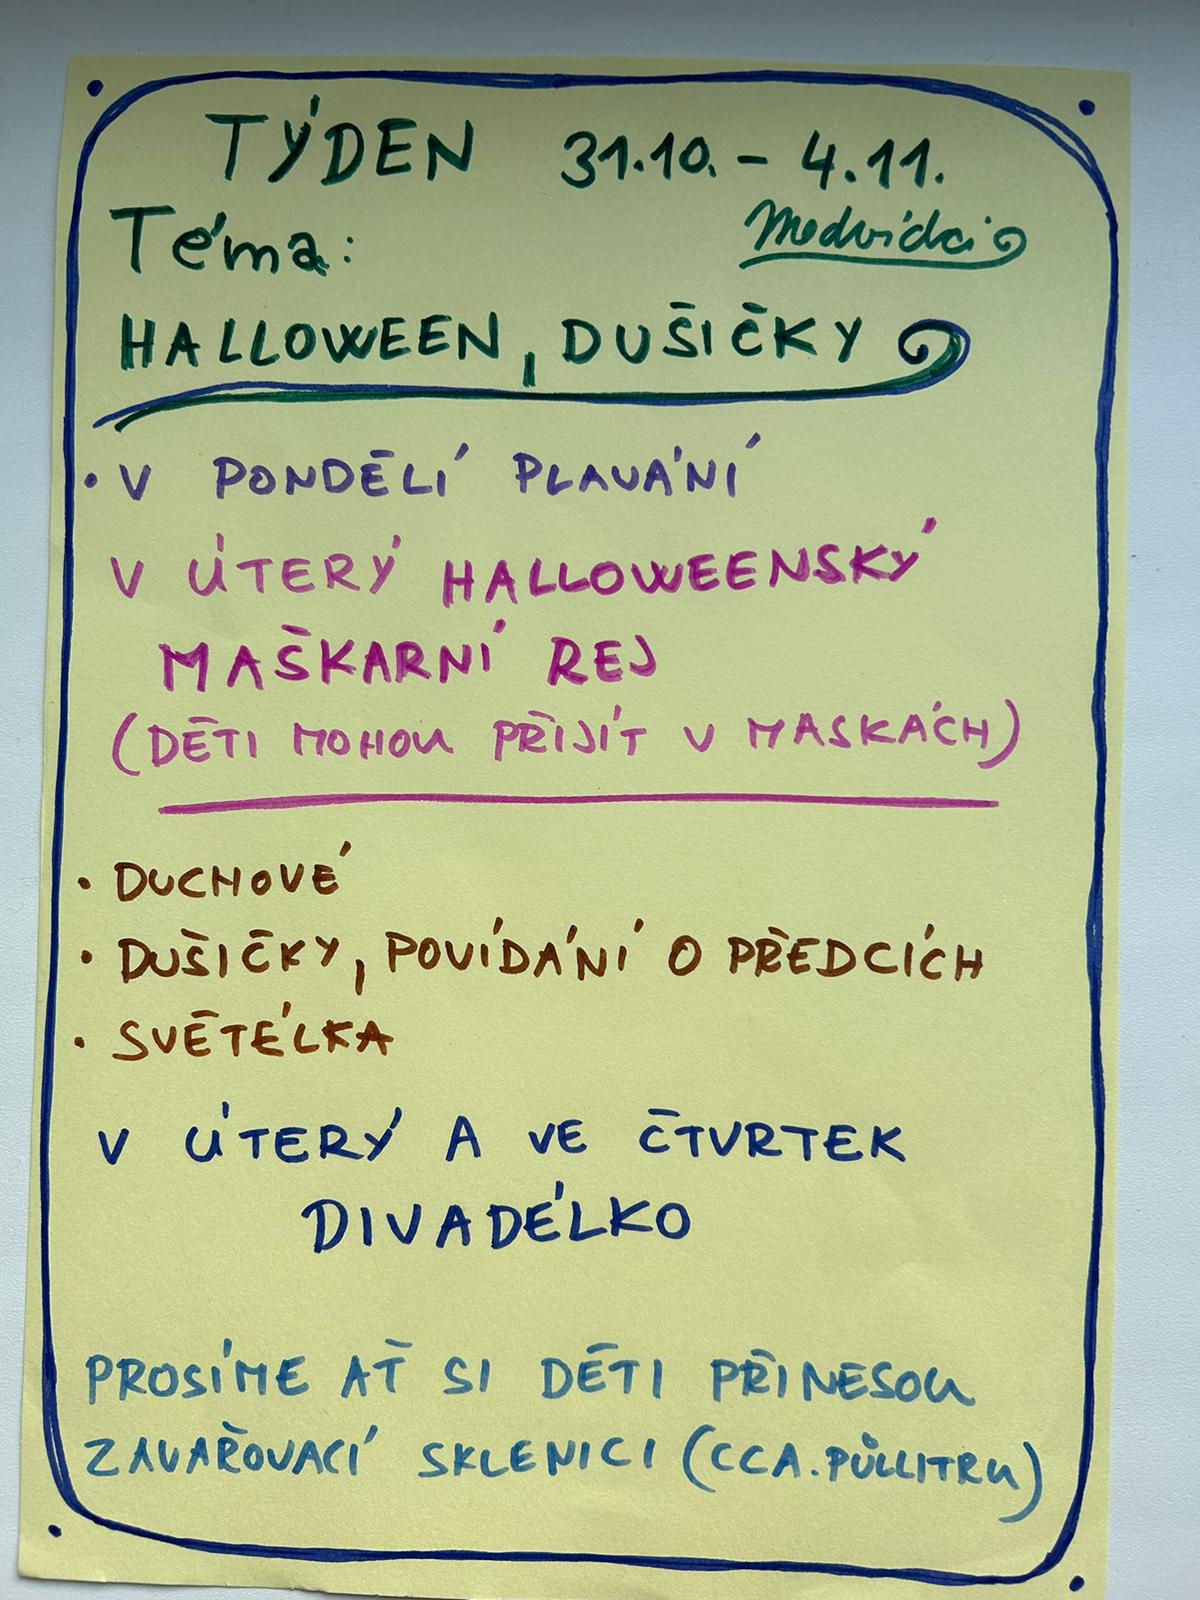 TÝDEN 31.10. - 4.11.
Téma: Medvídci
HALLOWEEN, DUŠIČKY
• V PONDĚLÍ PLAVÁNÍ
V ÚTERÝ HALLOWEENSKÝ
MAŠKARNÍ REJ
(DĚTI MOHOU PŘIJÍT V MASKÁCH)
• DUCHOVÉ
• DUŠIČKY, POVÍDÁNÍ O PŘEDCÍCH
• SVĚTÉLKA
V ÚTERÝ A VE ČTVRTEK
DIVADÉLKO
PROSÍME AŤ SI DĚTI PŘINESOU
ZAVAŘOVACÍ SKLENICI (CCA. PŮLLITRU)